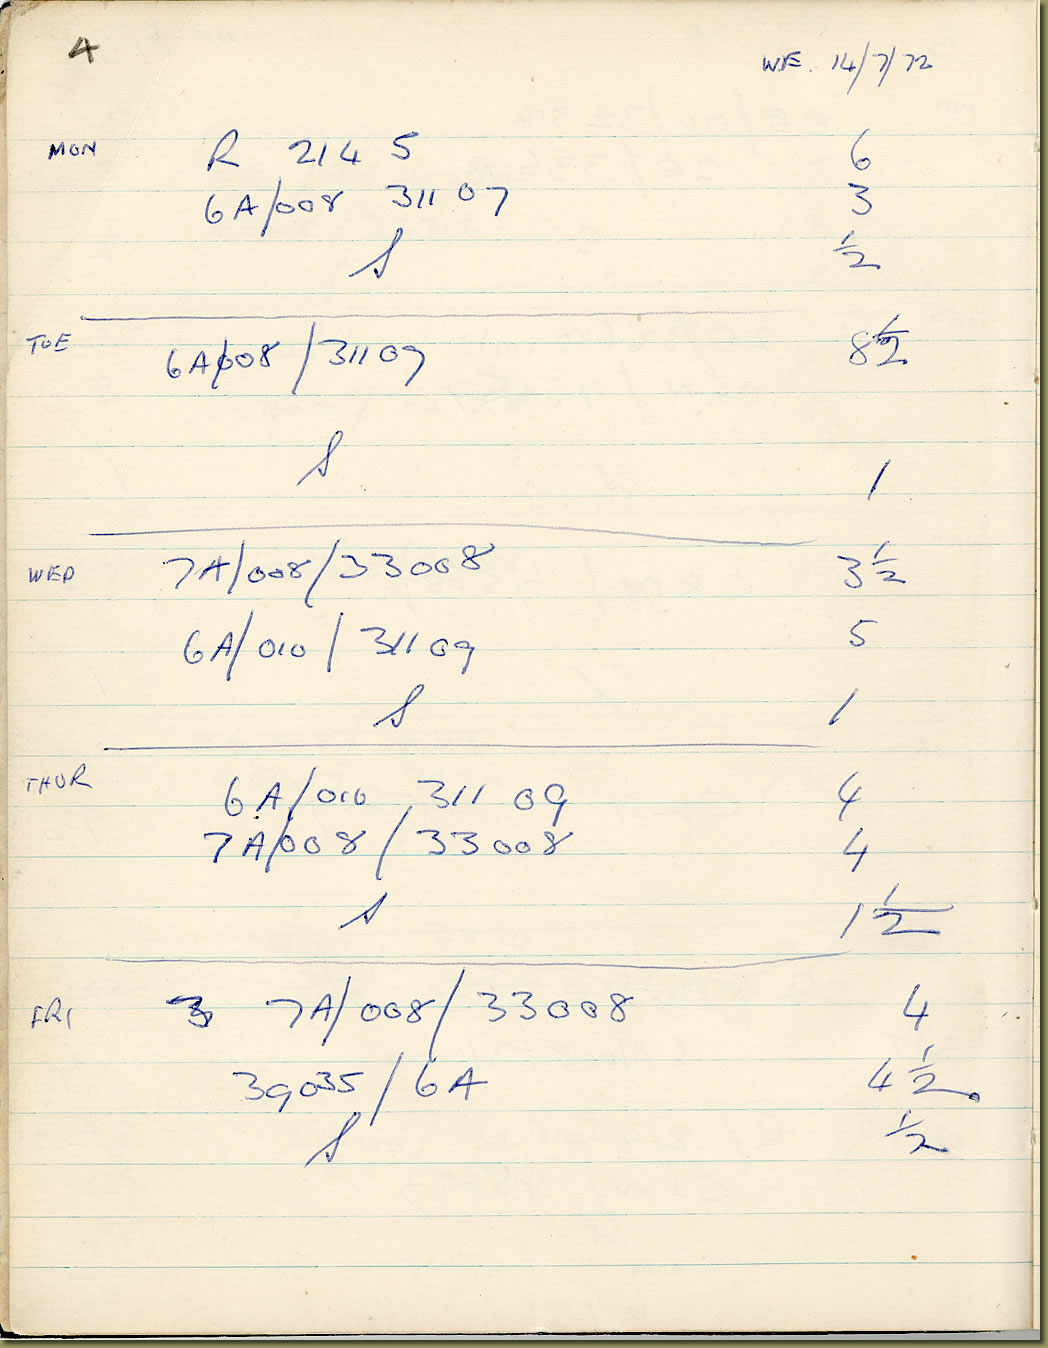 4
WE. 14/7/72
MON R 2145 6
6A/008 31107 3
S ½
TUE 6A/008/31109 8½
S 1
WED 7A/008/33008 3½
6A/010/31109 5
S 1
THUR 6A/010 31109 4
7A/008/33008 4
S 1½
FRI 7A/008/33008 4
39035/6A 4½.
S ½